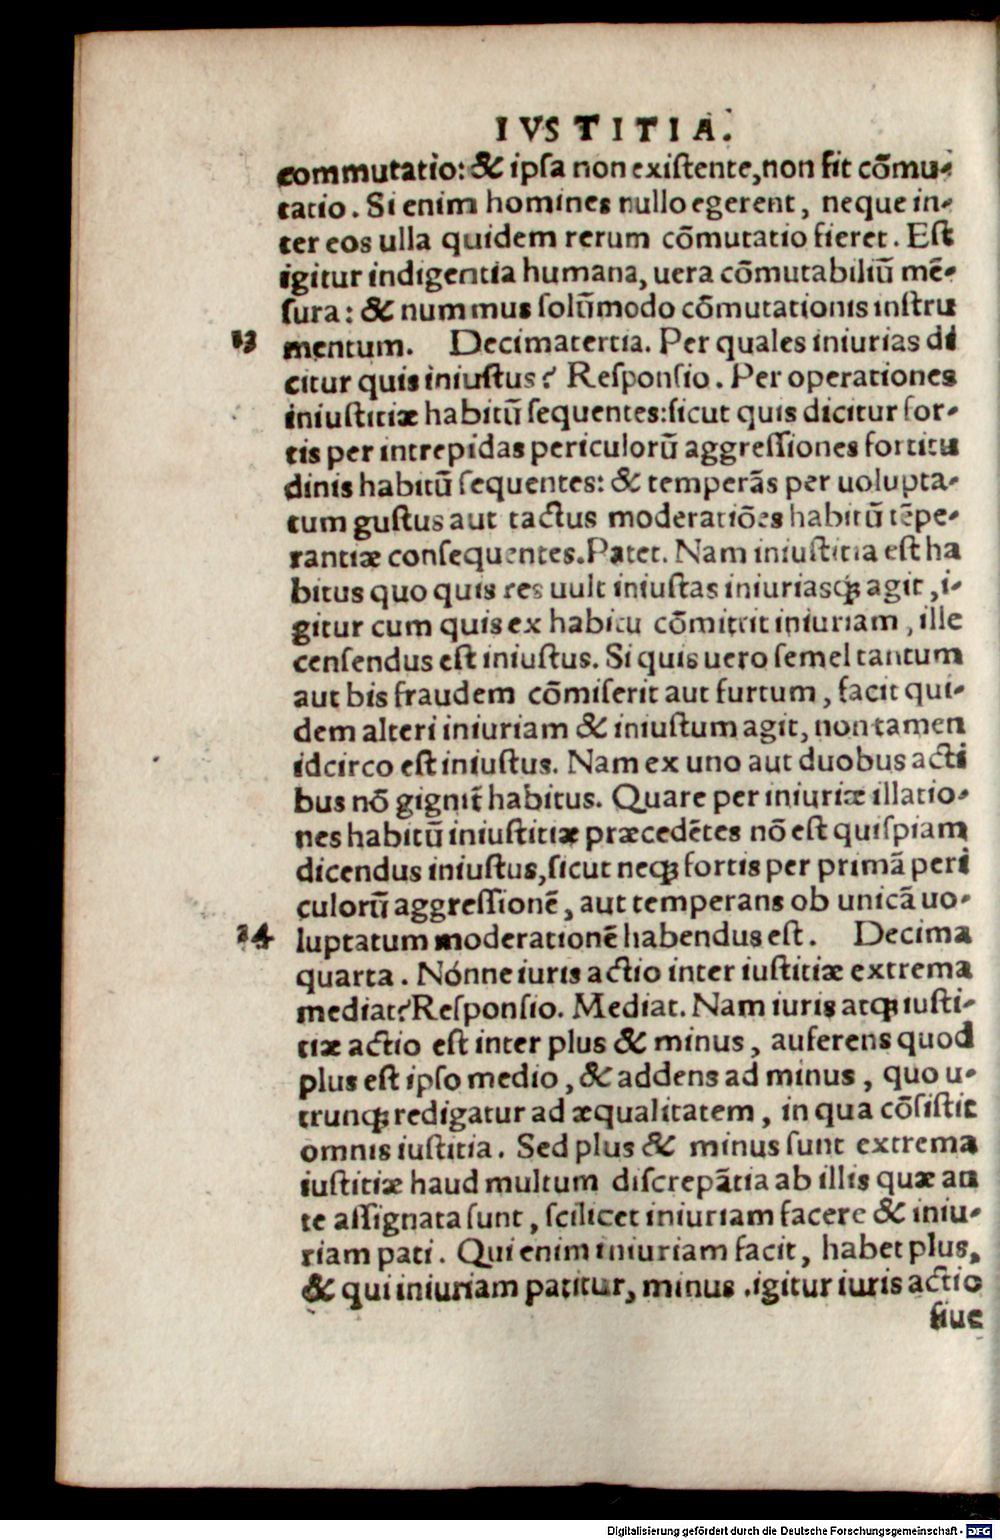 IVSTITIA.
commutatio: & ipſa non exiſtente, non fit cõmu-
tatio. Si enim homines nullo egerent, neque in-
ter eos ulla quidem rerum cõmutatio fieret. Eſt
igitur indigentia humana, uera cõmutabiliũ mẽ-
ſura: & nummus ſolũmodo cõmutationis inſtru
13 mentum. Decimatertia. Per quales iniurias di
citur quis iniuſtus? Reſponſio. Per operationes
iniuſtitiæ habitũ ſequentes: ſicut quis dicitur for-
tis per intrepidas periculorũ aggreſſiones fortitu
dinis habitũ ſequentes: & temperãs per uolupta-
tum guſtus aut tactus moderatiões habitũ tẽpe-
rantiæ conſequentes. Patet. Nam iniuſtitia eſt ha
bitus quo quis res uult iniuſtas iniuriasq; agit, i-
gitur cum quis ex habitu cõmittit iniuriam, ille
cenſendus eſt iniuſtus. Si quis uero ſemel tantum
aut bis fraudem cõmiſerit aut furtum, facit qui-
dem alteri iniuriam & iniuſtum agit, non tamen
idcirco eſt iniuſtus. Nam ex uno aut duobus acti
bus nõ gignit̃ habitus. Quare per iniuriæ illatio-
nes habitũ iniuſtitiæ præcedẽtes nõ eſt quiſpiam
dicendus iniuſtus, ſicut neq; fortis per primã peri
culorũ aggreſſionẽ, aut temperans ob unicã uo-
14 luptatum moderationẽ habendus eſt. Decima
quarta. Nónne iuris actio inter iuſtitiæ extrema
mediat? Reſponſio. Mediat. Nam iuris atq; iuſti-
tiæ actio eſt inter plus & minus, auferens quod
plus eſt ipſo medio, & addens ad minus, quo u-
trunq; redigatur ad æqualitatem, in qua cõſiſtit
omnis iuſtitia. Sed plus & minus ſunt extrema
iuſtitiæ haud multum diſcrepãtia ab illis quæ an
te aſſignata ſunt, ſcilicet iniuriam facere & iniu-
riam pati. Qui enim iniuriam facit, habet plus,
& qui iniuriam patitur, minus. igitur iuris actio
ſiue
Digitalisierung gefördert durch die Deutsche Forschungsgemeinschaft - DFG